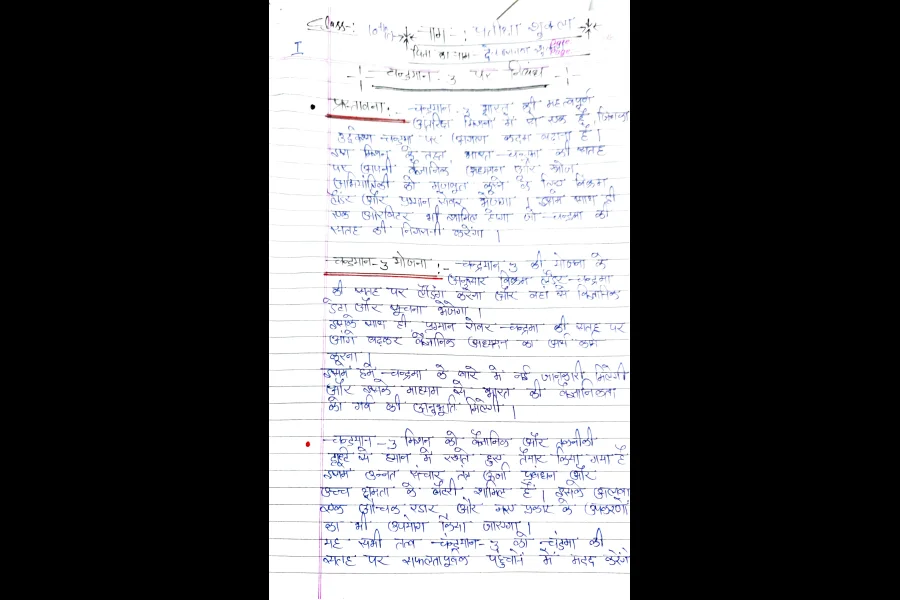 Class-: 10th नाम : शुक्ला
I
पिता का नाम -
चन्द्रयान - 3 पर निबंध
प्रस्तावना :- चन्द्रयान - 3 भारत की महत्वपूर्ण
अंतरिक्ष मिशनों में से एक है, जिसका
उद्देश्य चन्द्रमा पर अगला कदम बढ़ाना है।
इस मिशन के तहत भारत चन्द्रमा की सतह
पर अपनी वैज्ञानिक अध्ययन और खोज
अभियांत्रिकी को के लिए विक्रम
लैंडर और प्रज्ञान रोवर भेजेगा। इसमें साथ ही
एक ऑरबिटर भी शामिल होगा जो चन्द्रमा की
सतह की निगरानी करेगा।
चन्द्रयान-3 योजना :- चन्द्रयान 3 की योजना के
अनुसार विक्रम लैंडर चन्द्रमा
की सतह पर लैंडिंग करना और वहाँ से वैज्ञानिक
डेटा और सूचना भेजेगा।
इसके साथ ही प्रज्ञान रोवर चन्द्रमा की सतह पर
आगे बढ़कर वैज्ञानिक अध्ययन का कार्य
करेगा।
इससे हमें चन्द्रमा के बारे में नई जानकारी मिलेगी
और इसके माध्यम से भारत की वैज्ञानिकता
को गर्व की अनुभूति मिलेगी।
चन्द्रयान - 3 मिशन को वैज्ञानिक और तकनीकी
दृष्टि से ध्यान में रखते हुए तैयार किया गया है
इसमें उन्नत संचार तंत्र ऊर्जा प्रबंधन और
उच्च क्षमता के बैटरी शामिल हैं। इसके अलावा
एक रडार, और प्रकार के उपकरणों
का भी उपयोग किया जाएगा।
यह सभी तत्व चन्द्रयान - 3 को चंद्रमा की
सतह पर सफलतापूर्वक पहुंचाने में मदद करेंगे